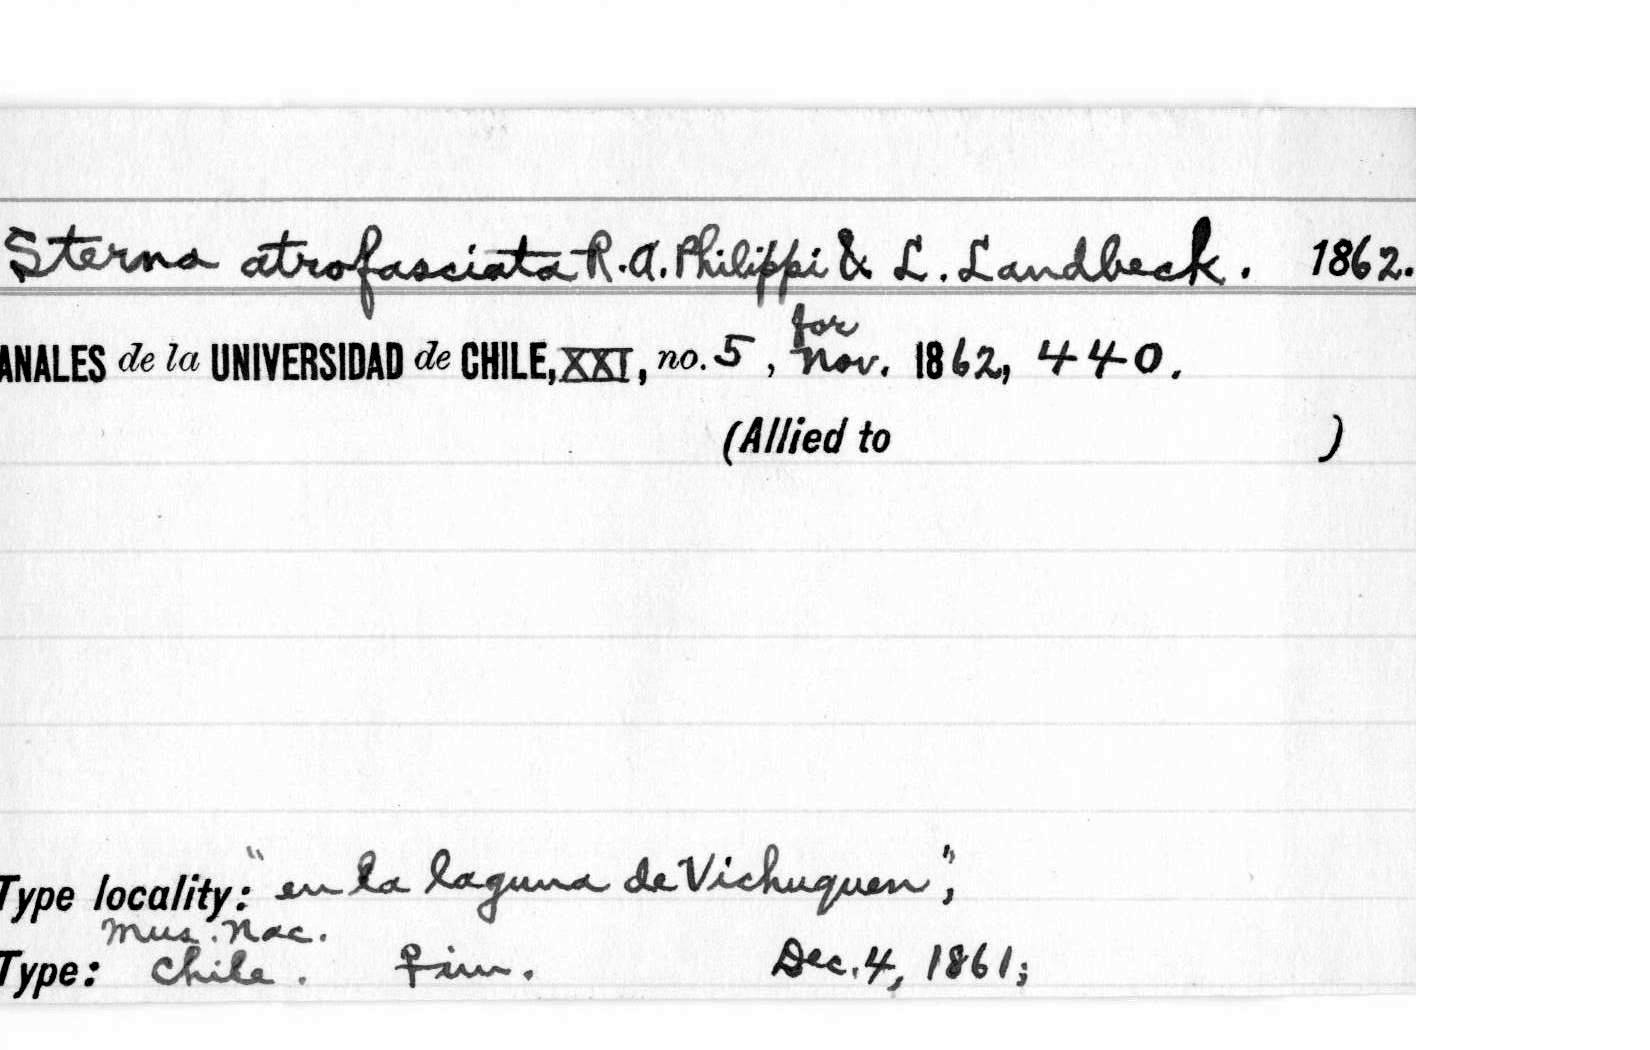 Sterna atrofasciata R.A. Philippi & L. Landbeck. 1862.
for
ANALES de la UNIVERSIDAD de CHILE, XXI, no. 5, Nov. 1862, 440.
(Allied to )
Type locality: "en la laguna de Vichuquen";
Mus. Nac.
Type: Chile. ♀ im. Dec. 4, 1861;